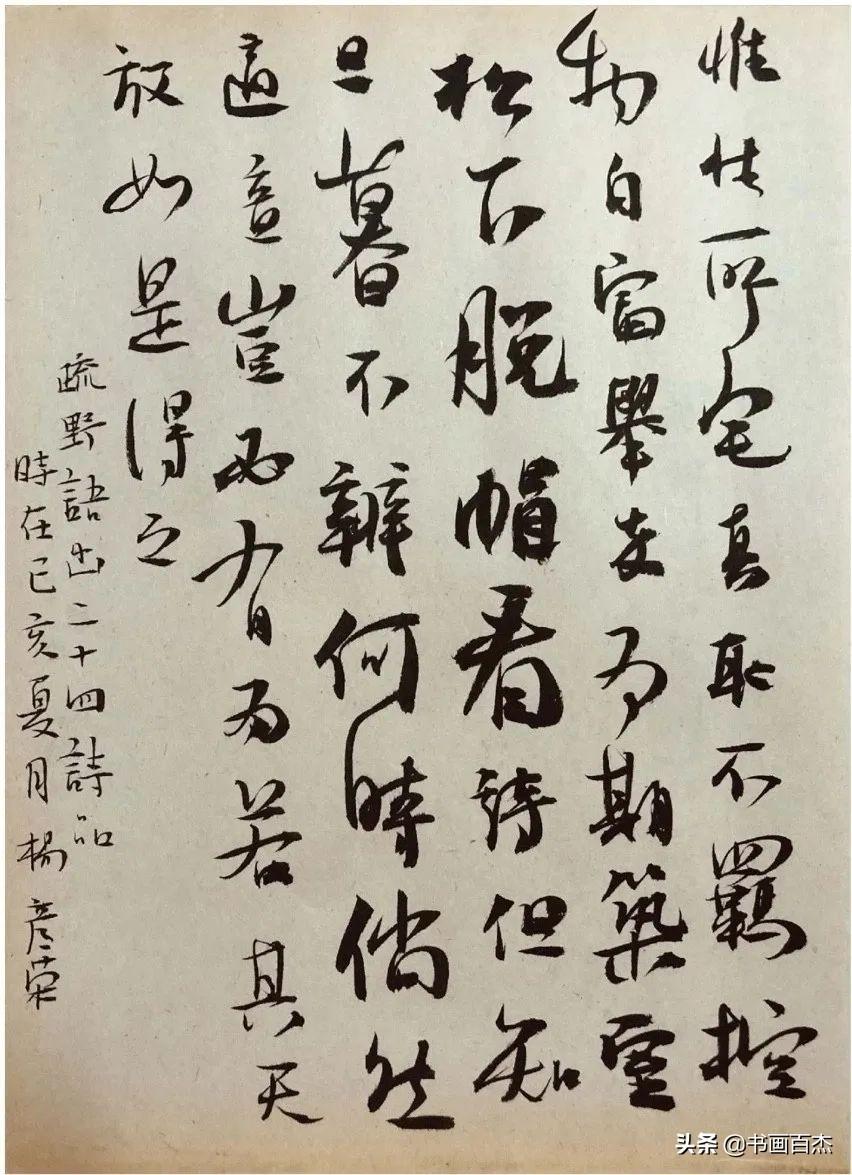 惟性所宅真取不羈控
物自富舉为期築室
松下脱帽看詩但知
旦暮不辨何時倘然
適意豈必有为若其天
放如是得之
疏野語出二十四詩品
時在己亥夏月楊彦荣
头条 @书画百杰